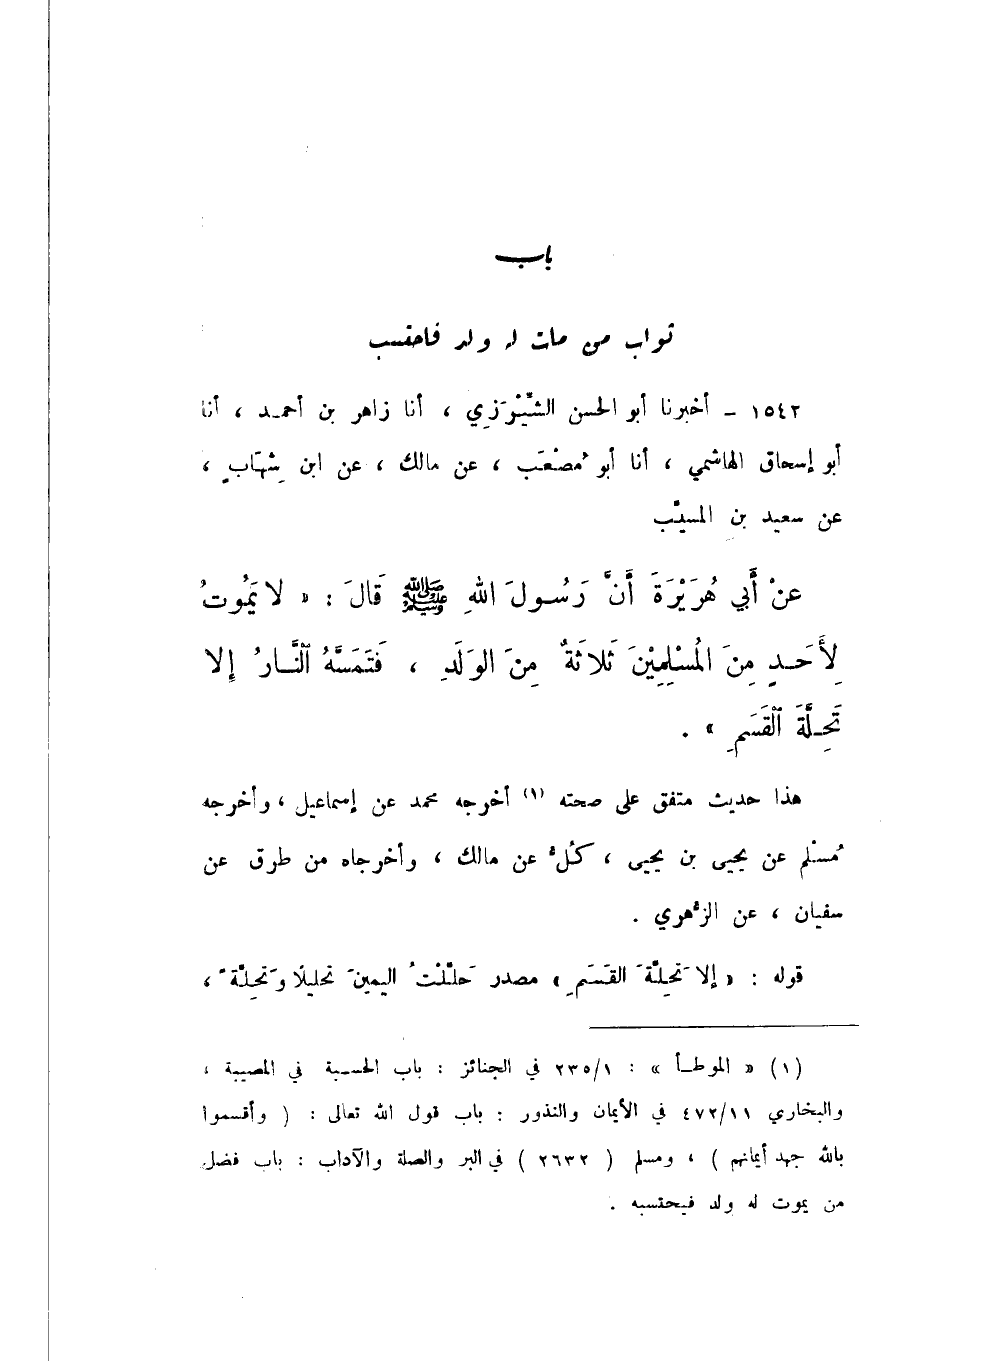 باب
ثواب من مات له ولد فاحتسب
١٥٤٢ – أخبرنا أبو الحسن الشِّيْرَزي ، أنا زاهر بن أحمـد ، أنا
أبو إسحاق الهاشمي ، أنا أبو مُصْعَب ، عن مالك ، عن ابن شِهَابٍ ،
عن سعيد بن المسيّب
عنْ أَبي هُرَيْرَةَ أَنَّ رَسُـولَ اللهِ ﷺ قَالَ : « لا يَمُوتُ
لِأَحَـدٍ مِنَ المُسْلِمِيْنَ ثَلاثَةٌ مِنَ الوَلَدِ ، فَتَمَسَّهُ النَّارُ إِلا
تَحِـلَّةَ القَسَمِ » .
هذا حديث متفق على صحته (١) أخرجه محمد عن إسماعيل ، وأخرجه
مُسْلم عن يحيى بن يحيى ، كلٌ عن مالك ، وأخرجاه من طرق عن
سفيان ، عن الزُهري .
قوله : « إلا تَحِلَّةَ القَسَمِ » مصدر حَلَّلْتُ اليمينَ تحليلًا وتَحِلَّةً ،
(١) « الموطـأ » : ٢٣٥/١ في الجنائز : باب الحسـبة في المصيبة ،
والبخاري ٤٧٢/١١ في الأيمان والنذور : باب قول الله تعالى : ( وأقسموا
بالله جهد أيمانهم ) ، ومسلم ( ٢٦٣٢ ) في البر والصلة والآداب : باب فضل
من يموت له ولد فيحتسبه .